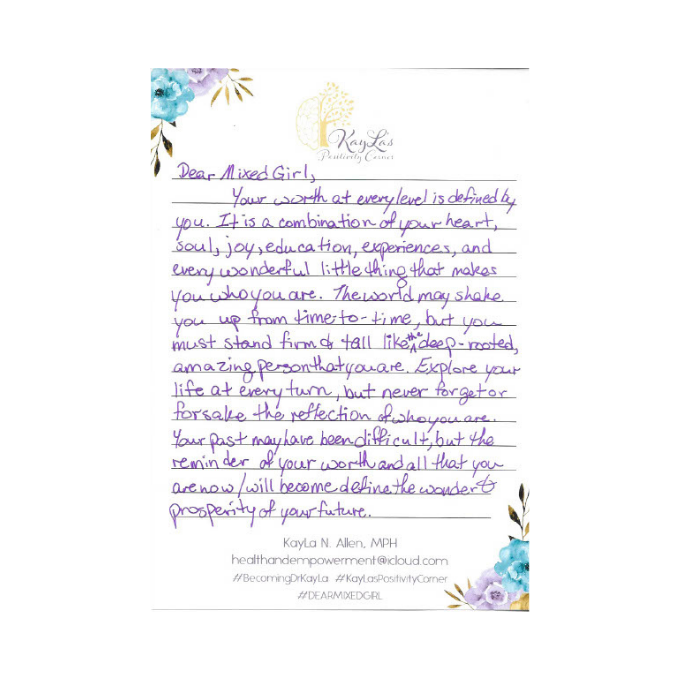 KayLa's
Positivity Corner
Dear Mixed Girl,
Your worth at every level is defined by
you. It is a combination of your heart,
soul, joy, education, experiences, and
every wonderful little thing that makes
you who you are. The world may shake
you up from time-to-time, but you
must stand firm & tall like the deep-rooted,
amazing person that you are. Explore your
life at every turn, but never forget or
forsake the reflection of who you are.
Your past may have been difficult, but the
reminder of your worth and all that you
are now/will become define the wonder &
prosperity of your future.
KayLa N. Allen, MPH
healthandempowerment@icloud.com
#BecomingDrKayLa #KayLasPositivityCorner
#DEARMIXEDGIRL